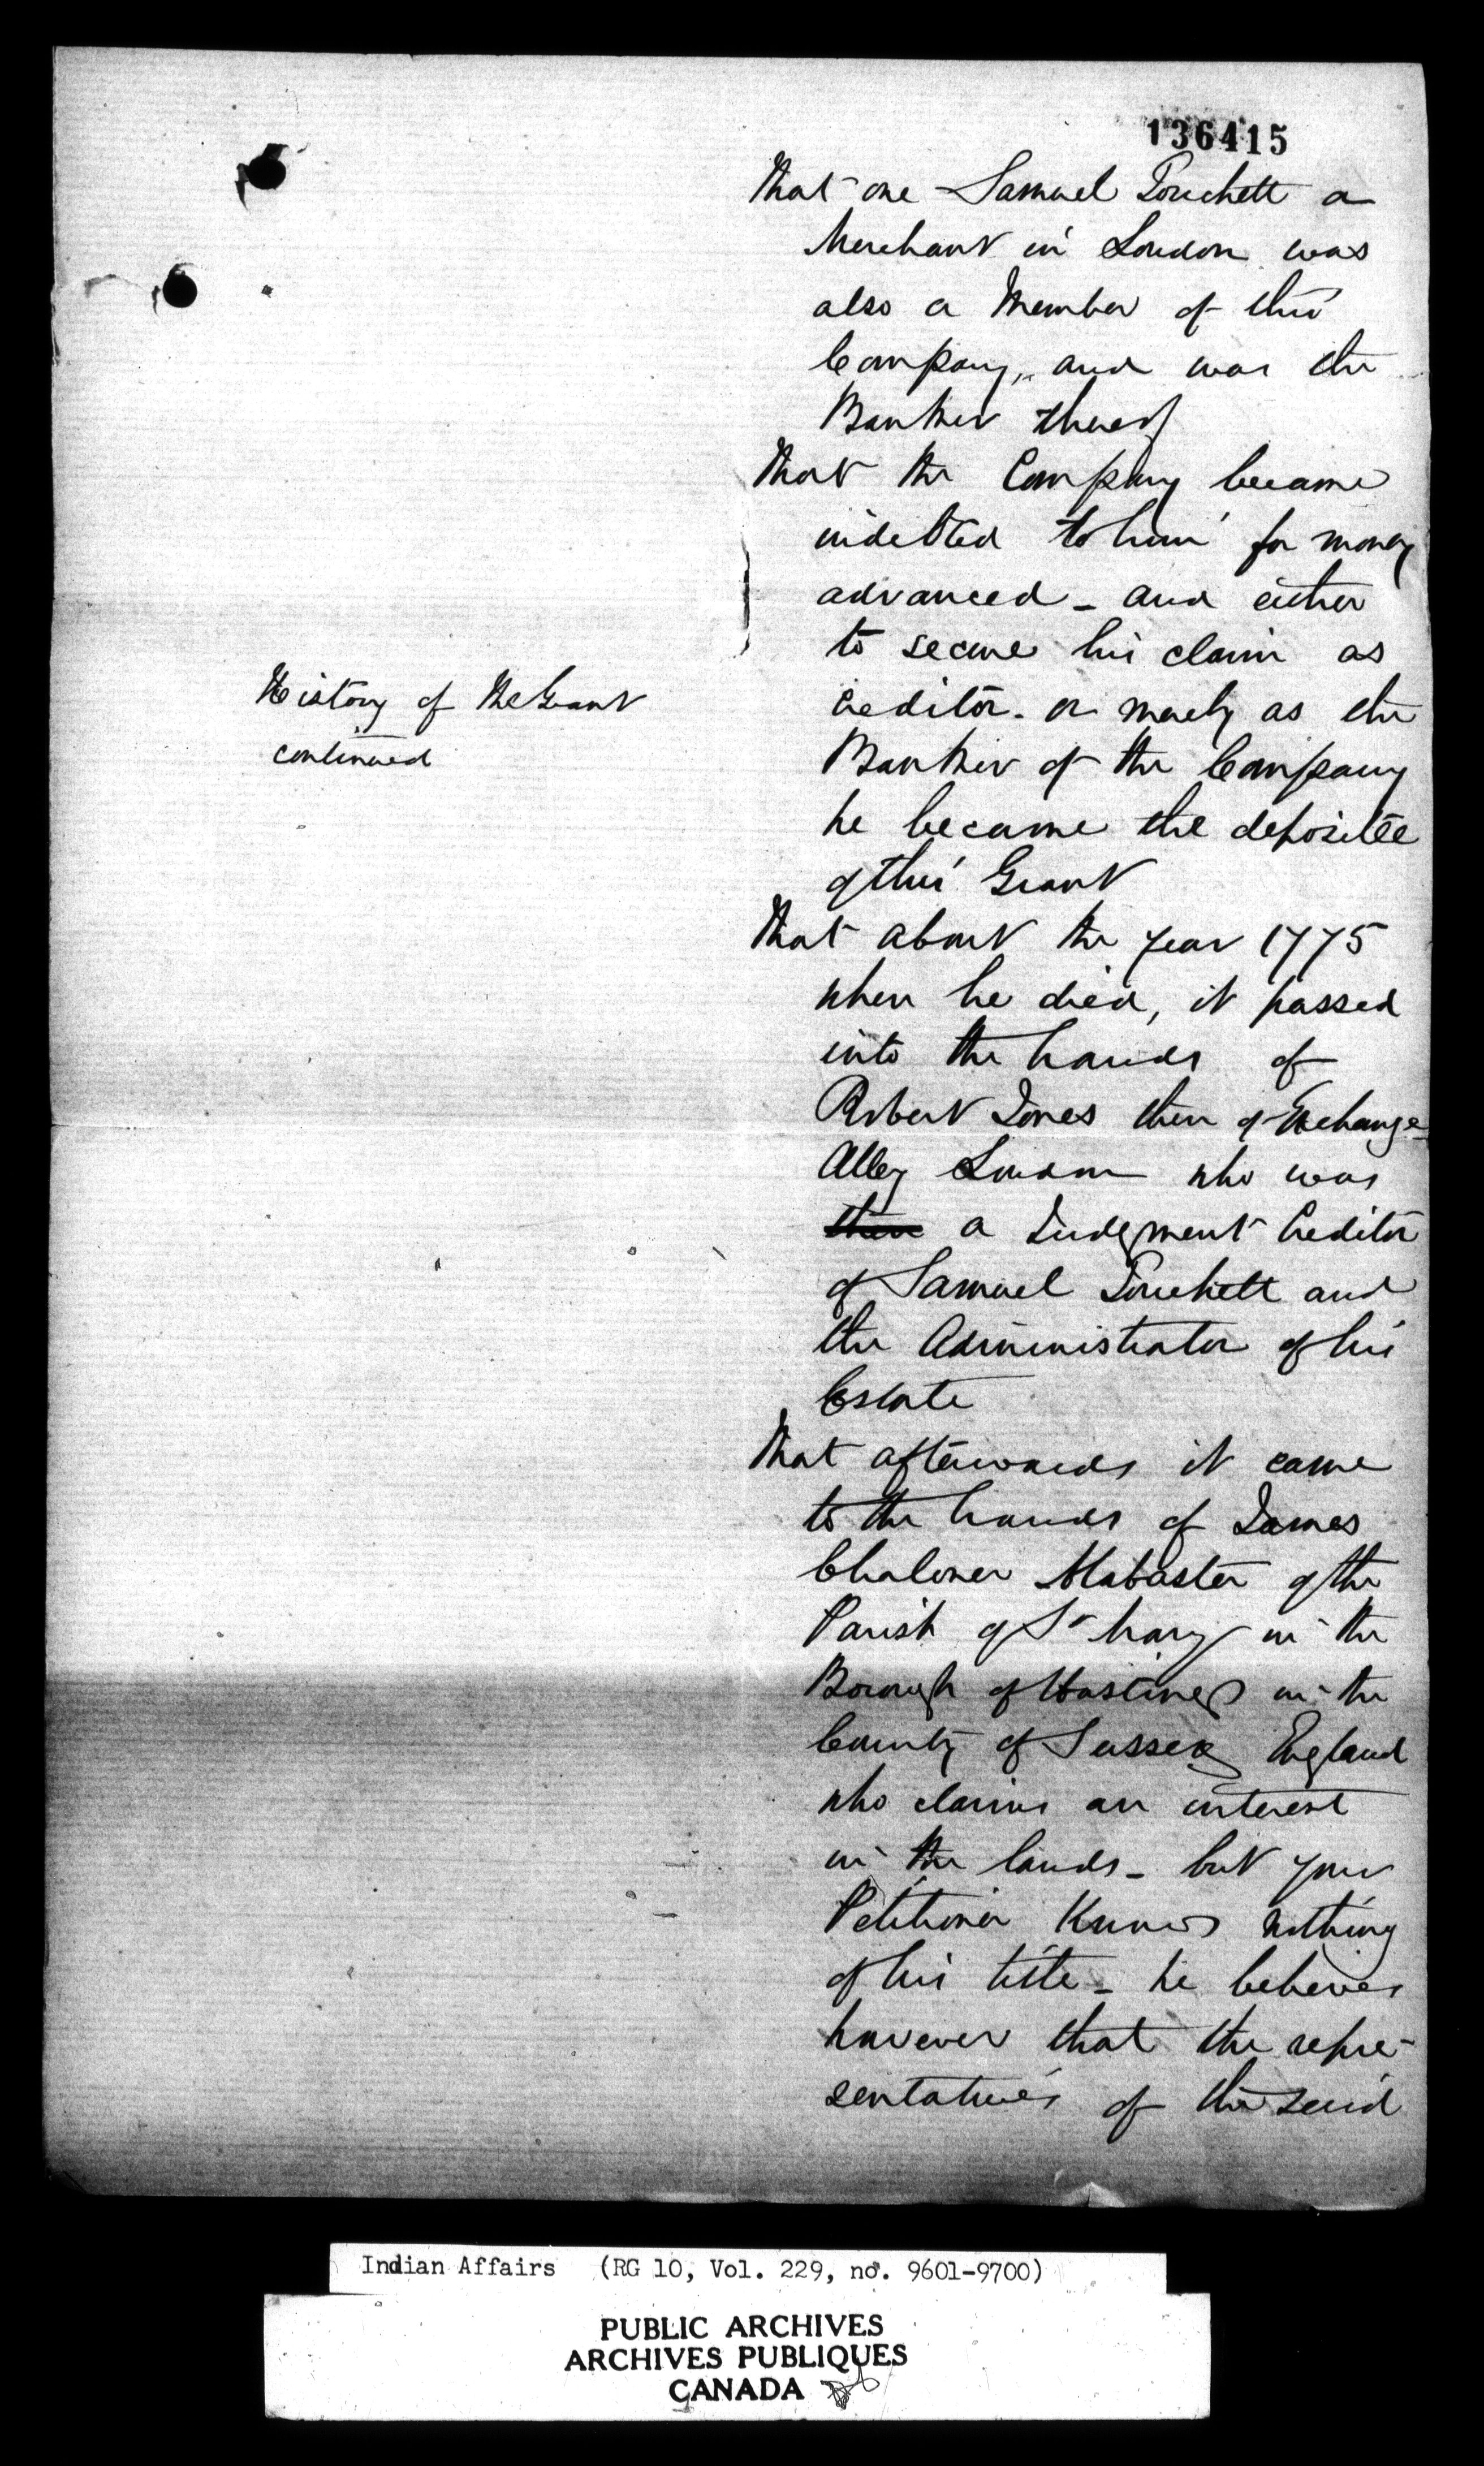 136415
that one Samuel Touchett a
Merchant in London was
also a Member of this
Company, and was the
Banker thereof
That the Company became
indebted to him for money
advanced - and either
to secure his claim as
Creditor - or merely as the
Banker of the Company
he became the depositee
of this Grant
History of the Grant
continued
That about the year 1775
when he died, it passed
into the hands of
Robert Jones then of Exchange
Alley London who was
then a Judgment Creditor
of Samuel Touchett and
the Administrator of his
Estate
That afterwards it came
to the hands of James
Chaloner Alabaster of the
Parish of St Mary in the
Borough of Hastings in the
County of Sussex England
who claims an interest
in the lands - but your
Petitioner Knows nothing
of his title - he believes
however that the repre-
sentatives of the said
Indian Affairs (RG 10, Vol. 229, no. 9601-9700)
PUBLIC ARCHIVES
ARCHIVES PUBLIQUES
CANADA